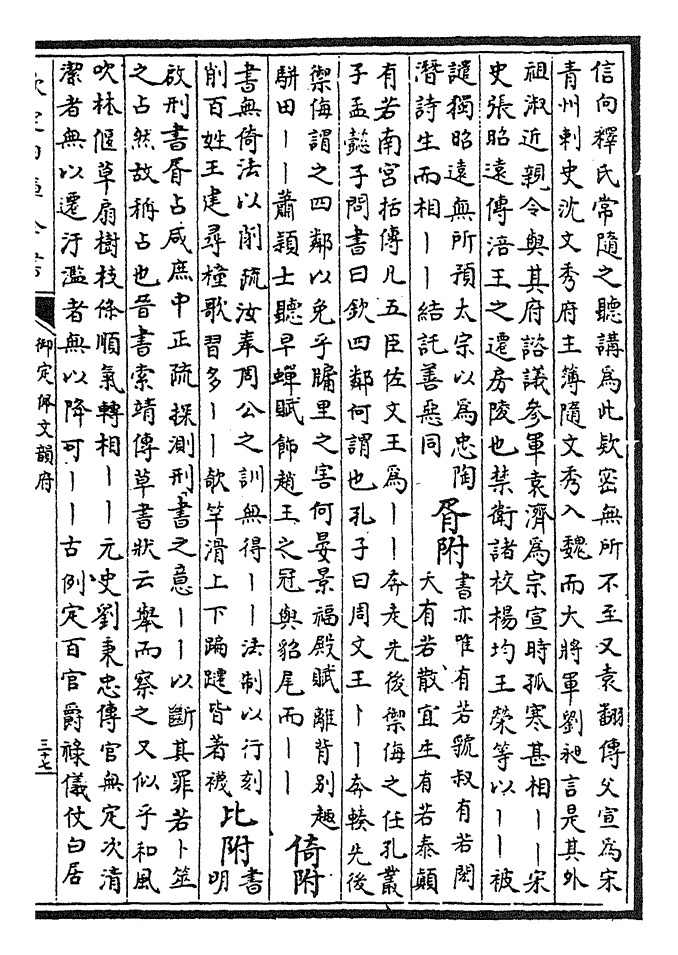 信向釋氏常隨之聽講爲此欵密無所不至又袁翻傳父宣爲宋
青州刺史沈文秀府主簿隨文秀入魏而大將軍劉昶言是其外
祖淑近親令與其府諮議參軍袁濟爲宗宣時孤寒甚相丨丨宋
史張昭遠傳涪王之遷房陵也禁衛諸校楊均王榮等以丨丨被
譴獨昭遠無所預太宗以爲忠陶
潛詩生而相丨丨結託善惡同
胥附
書亦唯有若虢叔有若閎
夭有若散宜生有若泰顛
有若南宮括傳凡五臣佐文王爲丨丨奔走先後禦侮之任孔叢
子孟懿子問書曰欽四鄰何謂也孔子曰周文王丨丨奔輳先後
禦侮謂之四鄰以免乎牖里之害何晏景福殿賦離背別趣
駢田丨丨蕭穎士聽早蟬賦飾趙王之冠與貂尾而丨丨
倚附
書無倚法以削疏汝奉周公之訓無得丨丨法制以行刻
削百姓王建尋橦歌習多丨丨欹竿滑上下蹁躚皆著襪
比附
書
明
啟刑書胥占咸庶中正疏探測刑書之意丨丨以斷其罪若卜筮
之占然故稱占也晉書索靖傳草書狀云舉而察之又似乎和風
吹林偃草扇樹枝條順氣轉相丨丨元史劉秉忠傳官無定次清
潔者無以遷汙濫者無以降可丨丨古例定百官爵祿儀仗白居
欽定四庫全書
御定佩文韻府
三十七